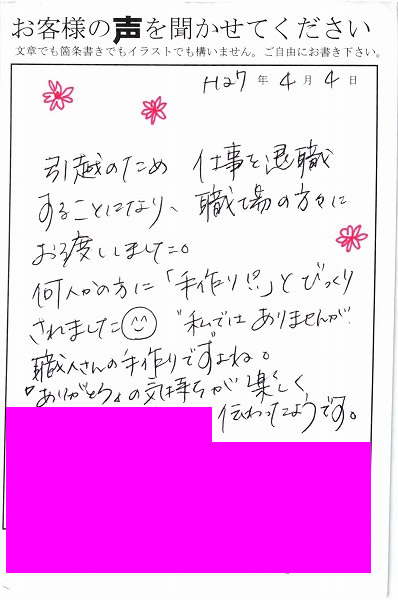 お客様の声を聞かせてください
文章でも箇条書きでもイラストでも構いません。ご自由にお書き下さい。
H27年4月4日
引越のため 仕事を退職
することになり、職場の方々に
お渡ししました。
何人かの方に「手作り!?」とびっくり
されました 私ではありませんが
職人さんの手作りですよね。
"ありがとう"の気持ちが楽しく
伝わったようです。